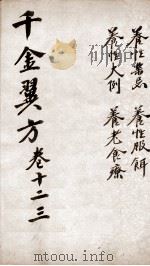 養性禁忌　養性服餌
養性大例　養老食療
千金翼方卷十二三
www.mtoou.info
mtoou.com